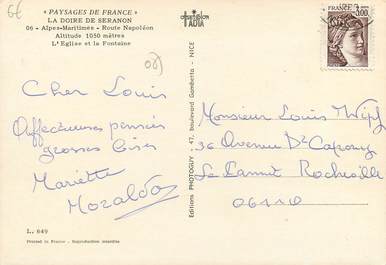 6€
« PAYSAGES DE FRANCE »
LA DOIRE DE SERANON
06 - Alpes-Maritimes - Route Napoléon
Altitude 1050 mètres
L'Eglise et la Fontaine
Cher Louis
Affectueuses pensées
grosses bises
Mariette
Mozaldo
L. 649
Printed in France - Reproduction interdite
Editions PHOTOGUY - 47, boulevard Gambetta - NICE
FRANCE
3,00
Monsieur Louis
36 Avenue Dr
Le Cannet Rocheville
06110